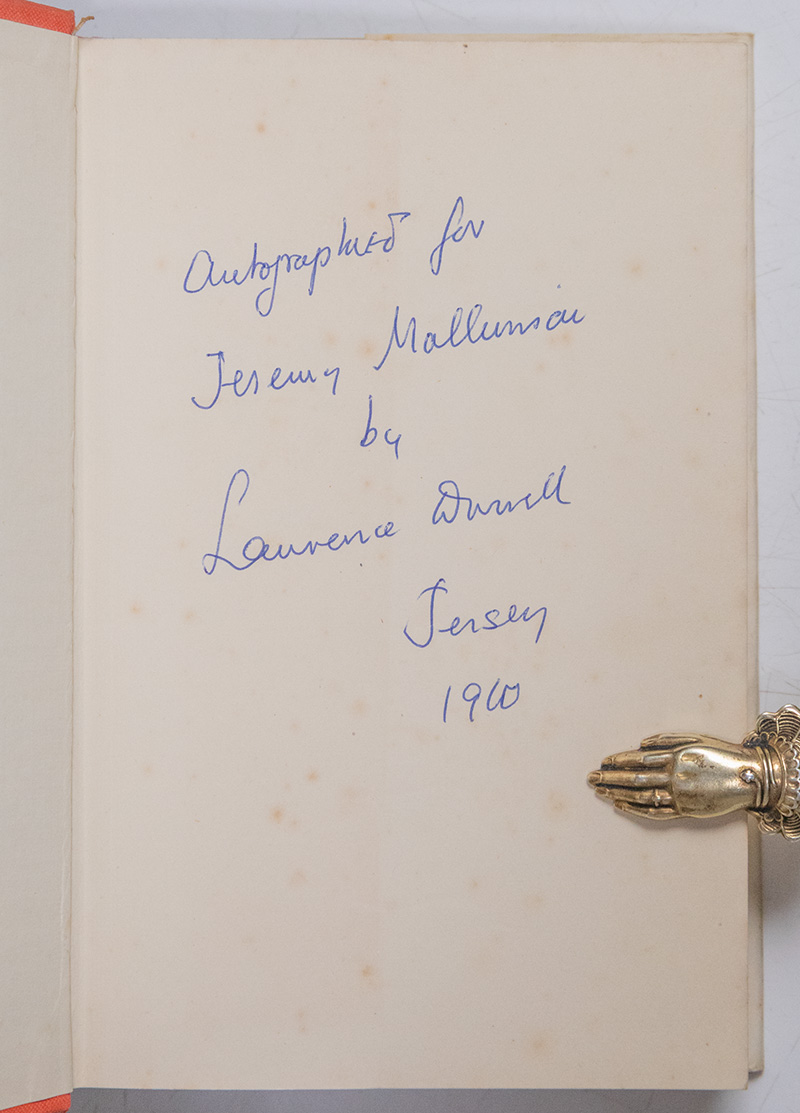 Autographed for
Jeremy Mallinson
by
Lawrence Durrell
Jersey
1960